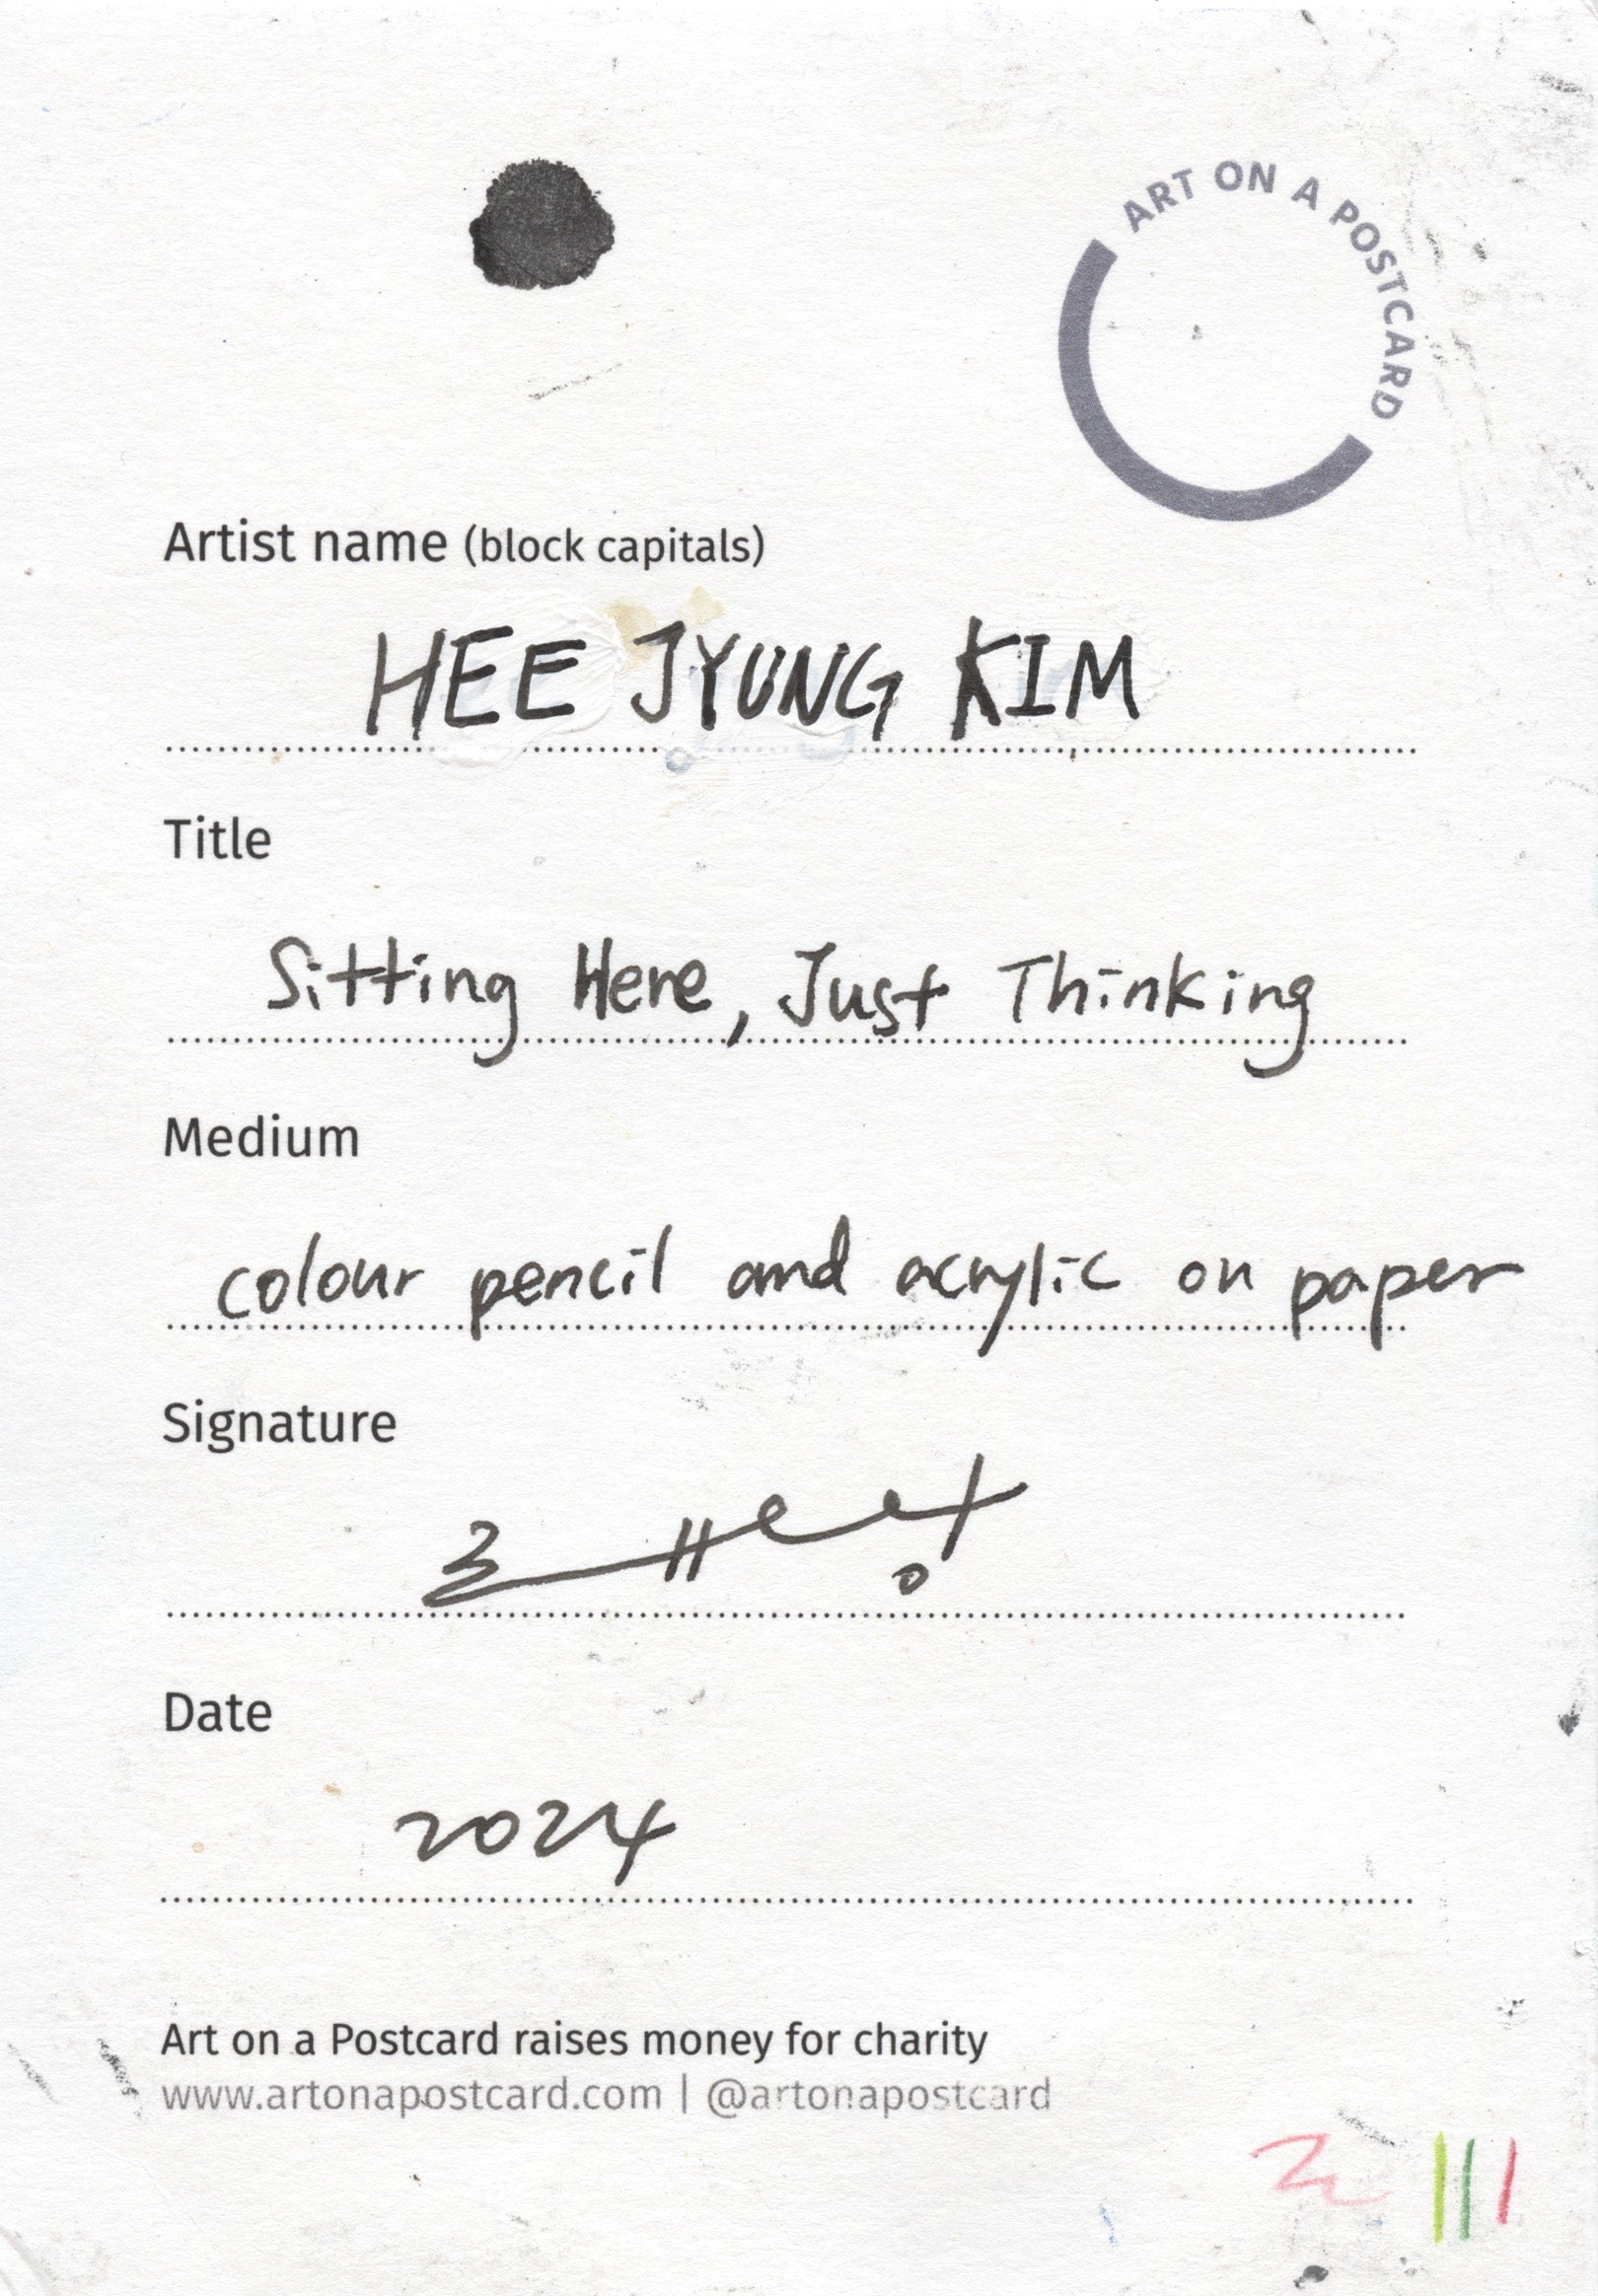 ART ON A POSTCARD
Artist name (block capitals)
HEE JYUNG KIM
Title
Sitting Here, Just Thinking
Medium
colour pencil and acrylic on paper
Signature
Date
2024
Art on a Postcard raises money for charity
www.artonapostcard.com | @artonapostcard